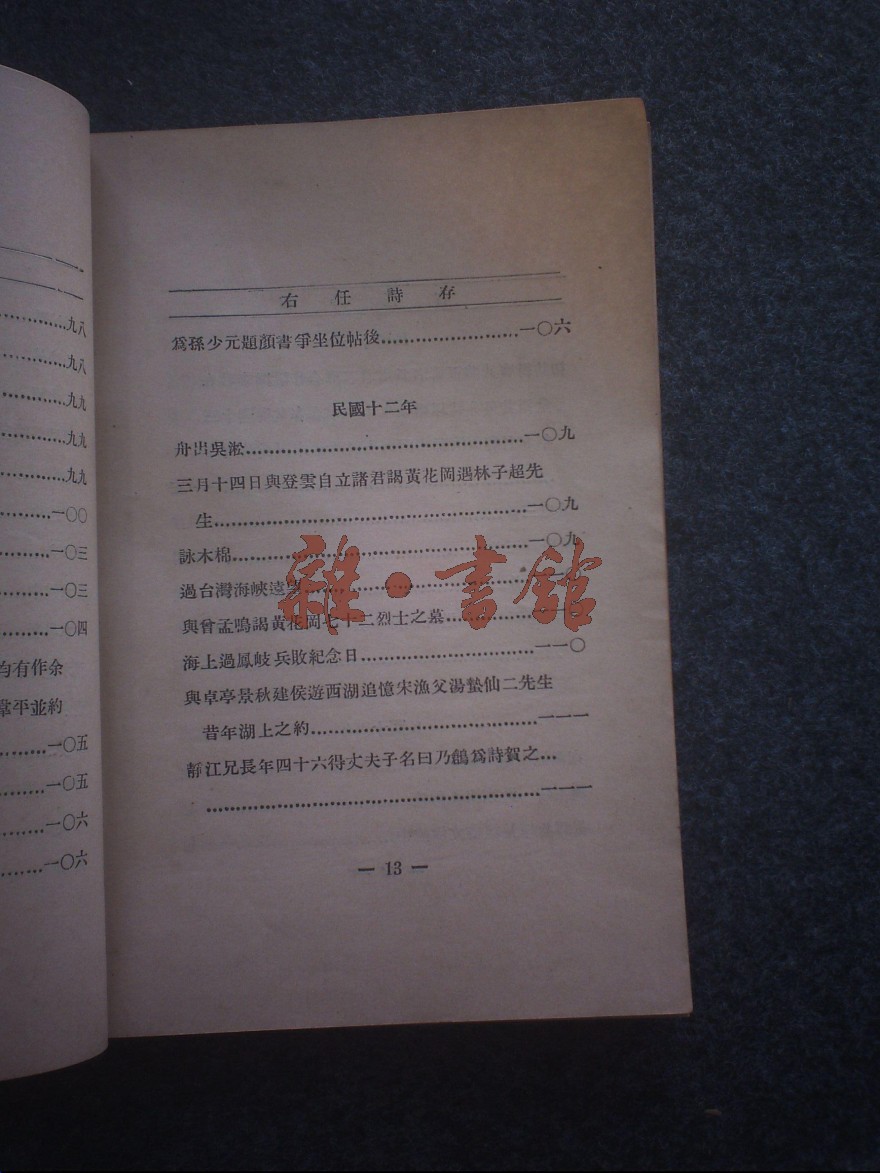 九八
九八
九九
九九
九九
一〇〇
一〇三
一〇三
一〇四
均有作余
平並約
一〇五
一〇五
一〇六
一〇六
右任詩存
爲孫少元題顏書爭坐位帖後……………………一〇六
民國十二年
舟出吳淞……………………一〇九
三月十四日與登雲自立諸君謁黃花岡遇林子超先
生……………………一〇九
詠木棉……………………一〇九
過台灣海峽遠望……………………
與曾孟鳴謁黃花岡七十二烈士之墓……………………一一〇
海上過鳳岐兵敗紀念日……………………一一〇
與卓亭景秋建侯遊西湖追憶宋漁父湯蟄仙二先生
昔年湖上之約……………………一一一
靜江兄長年四十六得丈夫子名曰乃爲詩賀之…
……………………一一一
— 13 —
雜·書館